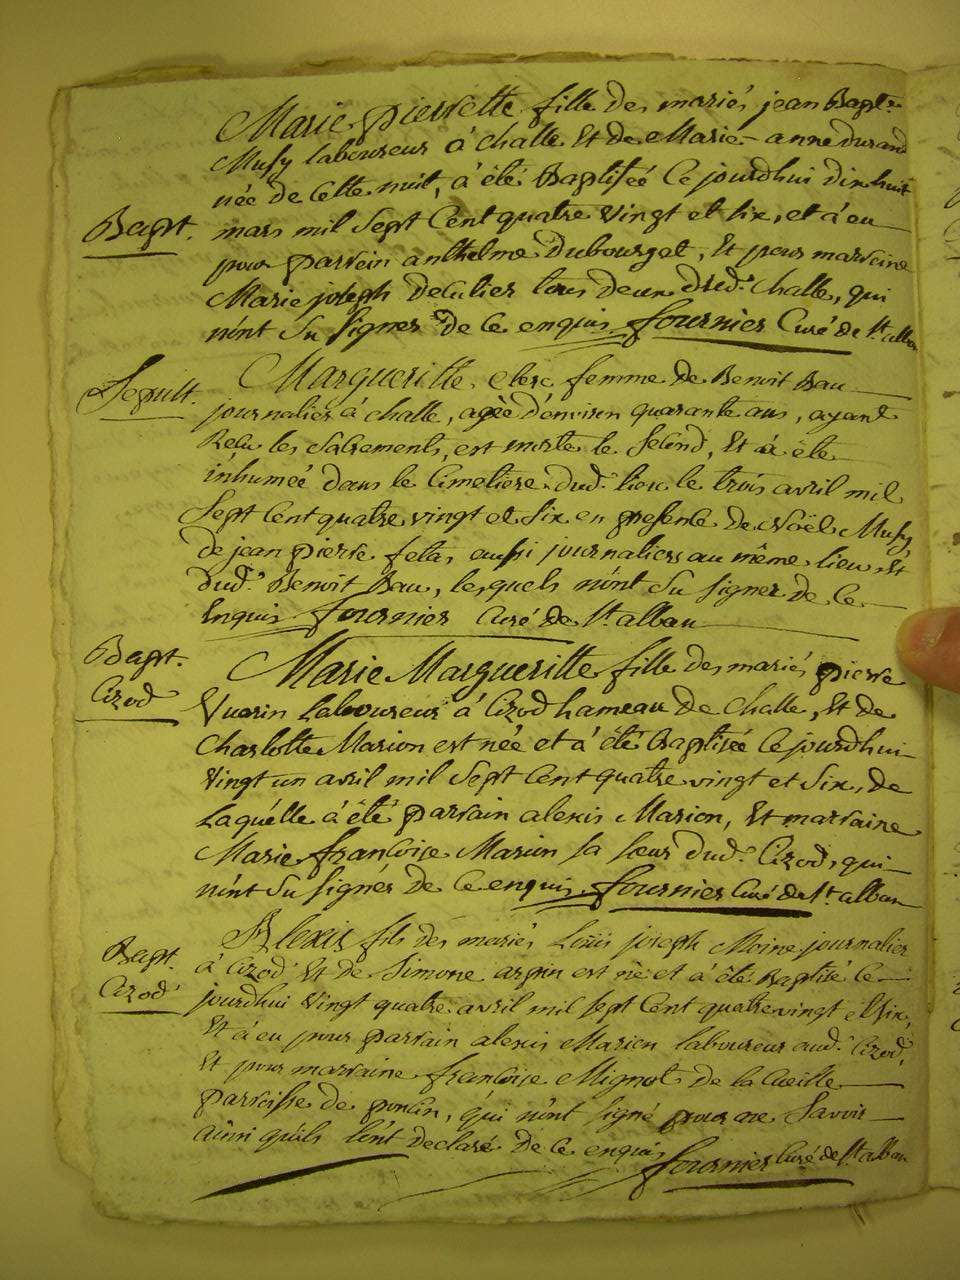 Marie pierrette fille des mariés jean Bapte
Musy laboureur à challe Et de Marie-anne durand
née de Cette nuit, à été Baptiseé Ce jourdhui dix huit
Bapt. mars mil Sept Cent quatre Vingt et six, et à eu
pour parrein anthelme Dubourget, Et pour marreine
Marie joseph tous deux dud. Challe, qui
n'int Su Signer de Ce enquis fournier Curé de St alban
Sepult. Margueritte Clerc femme de Benoit Bau
journalier à challe, ageè d'environ quarante ans, ayant
Recu les Sacrements, est morte le Second, Et à été
inhumeé dans le Cimetiere dud. lieu le trois avril mil
Sept Cent quatre vingt et Six en presence de Noël Musy,
de jean pierre fetas aussi journaliers au même lieu, et
dud. Benoit Bau, lesquels n'int Su Signer de Ce
Enquis fournier Curé de St alban
Bapt. Cizod Marie Margueritte fille des mariés pierre
Vuarin Laboureur à Cizod hameau de Challe, Et de
Charlotte Marion est née et à été Baptisée Ce jourdhui
Vingt un avril mil Sept Cent quatre vingt et Six, de
Laquelle à été parrain alexis Marion, Et marraine
Marie françoise Marion Sa Soeur dud. Cizod, qui
n'int Su Signer de Ce enquis fournier Curé de St alban
Bapt. Cizod Alexis fils des mariés Loüis joseph Moine journalier
à Cizod Et de Simone argin est né et à été Baptisé Ce
jourdhui Vingt quatre avril mil Sept Cent quatre vingt et Six,
Et à eu pour parrain alexis Marion laboureur aud. Cizod,
Et pour marraine françoise Mignot de la Cueille
parroisse de poncin, qui n'int Signé pour ne Savoir
ainsi qu'ils l'ont declaré de Ce enquis fournier Curé de St alban